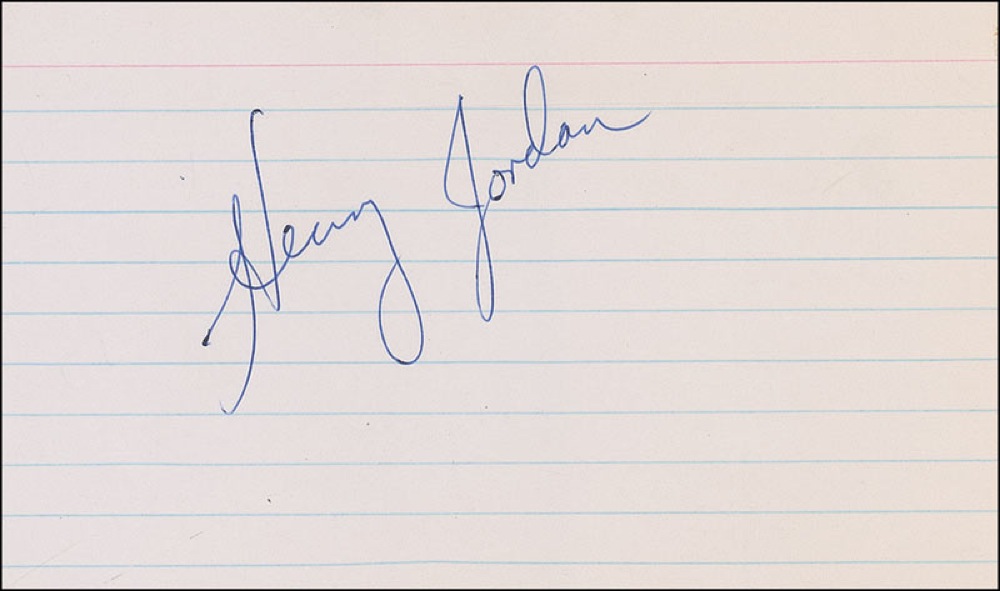 Henry Jordan